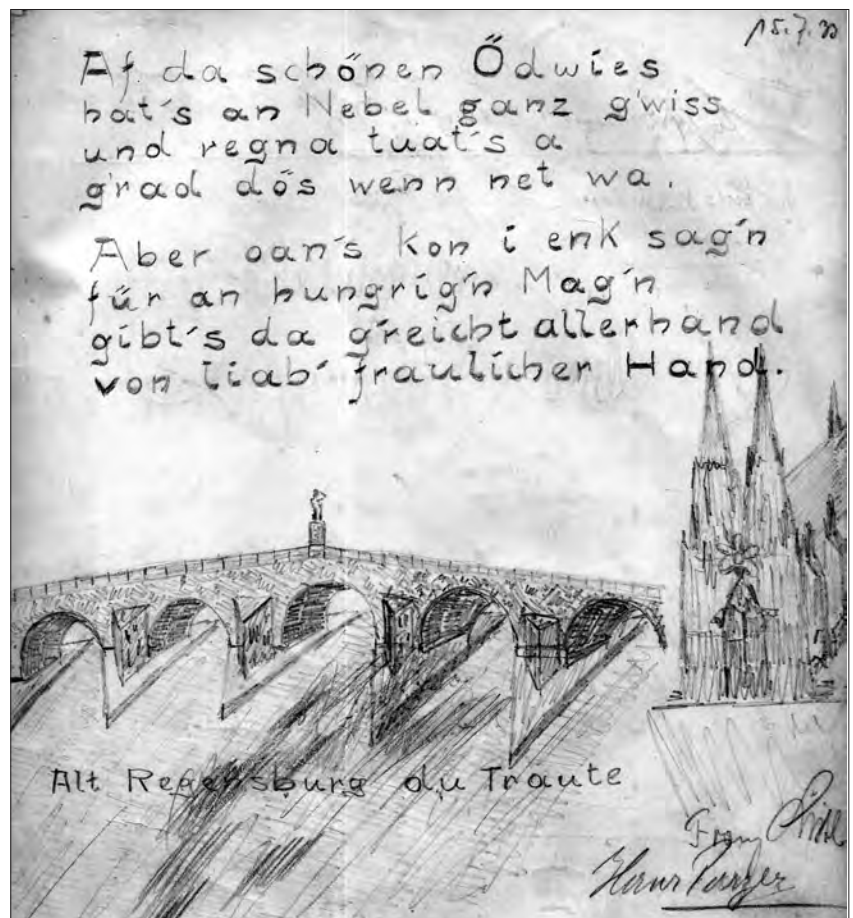 15.7.33
Af da schőnen Ődwies
hat's an Nebel ganz g'wiss
und regna tuat's a
g'rad dős wenn net wa.
Aber oan's kon i enk sag'n
für an hungrig'n Mag'n
gibt's da g'reicht allerhand
von liab' fraulicher Hand.
Alt Regensburg du Traute
Franz
Hans